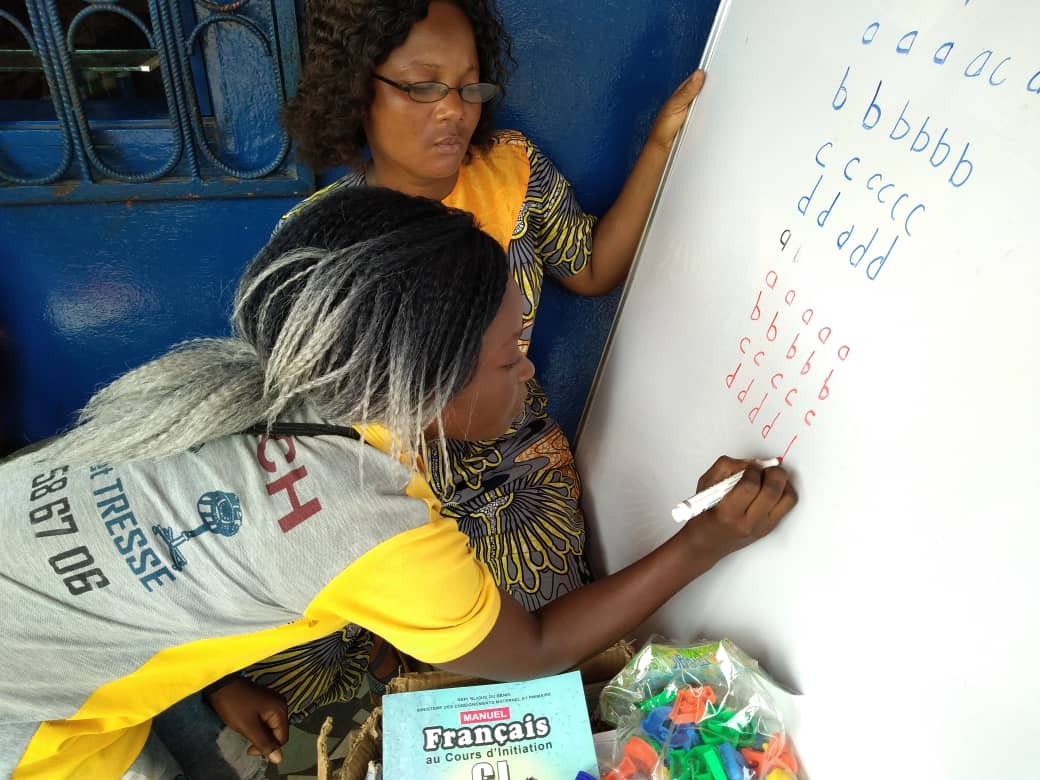 a a a a c a
b b b b b b
c c c c c c
d d d d d
a
a a a a a
b b b b b
c c c c c
d d d d
CH
TRESSE
58 67 06
REPUBLIQUE DU BENIN
MINISTERE DES ENSEIGNEMENTS MATERNEL ET PRIMAIRE
MANUEL
Français
au Cours d'Initiation
CI